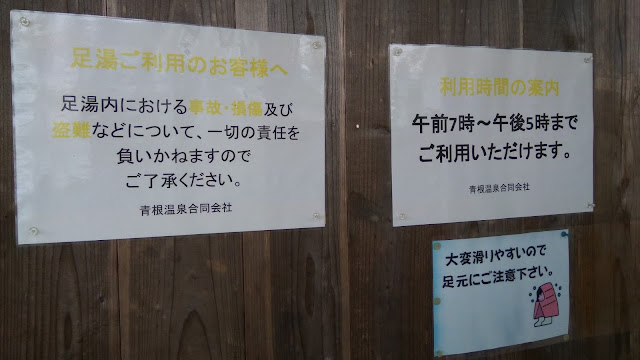 足湯ご利用のお客様へ
足湯内における事故・損傷及び
盗難などについて、一切の責任を
負いかねますので
ご了承ください。
青根温泉合同会社
利用時間の案内
午前7時～午後5時まで
ご利用いただけます。
青根温泉合同会社
大変滑りやすいので
足元にご注意下さい。